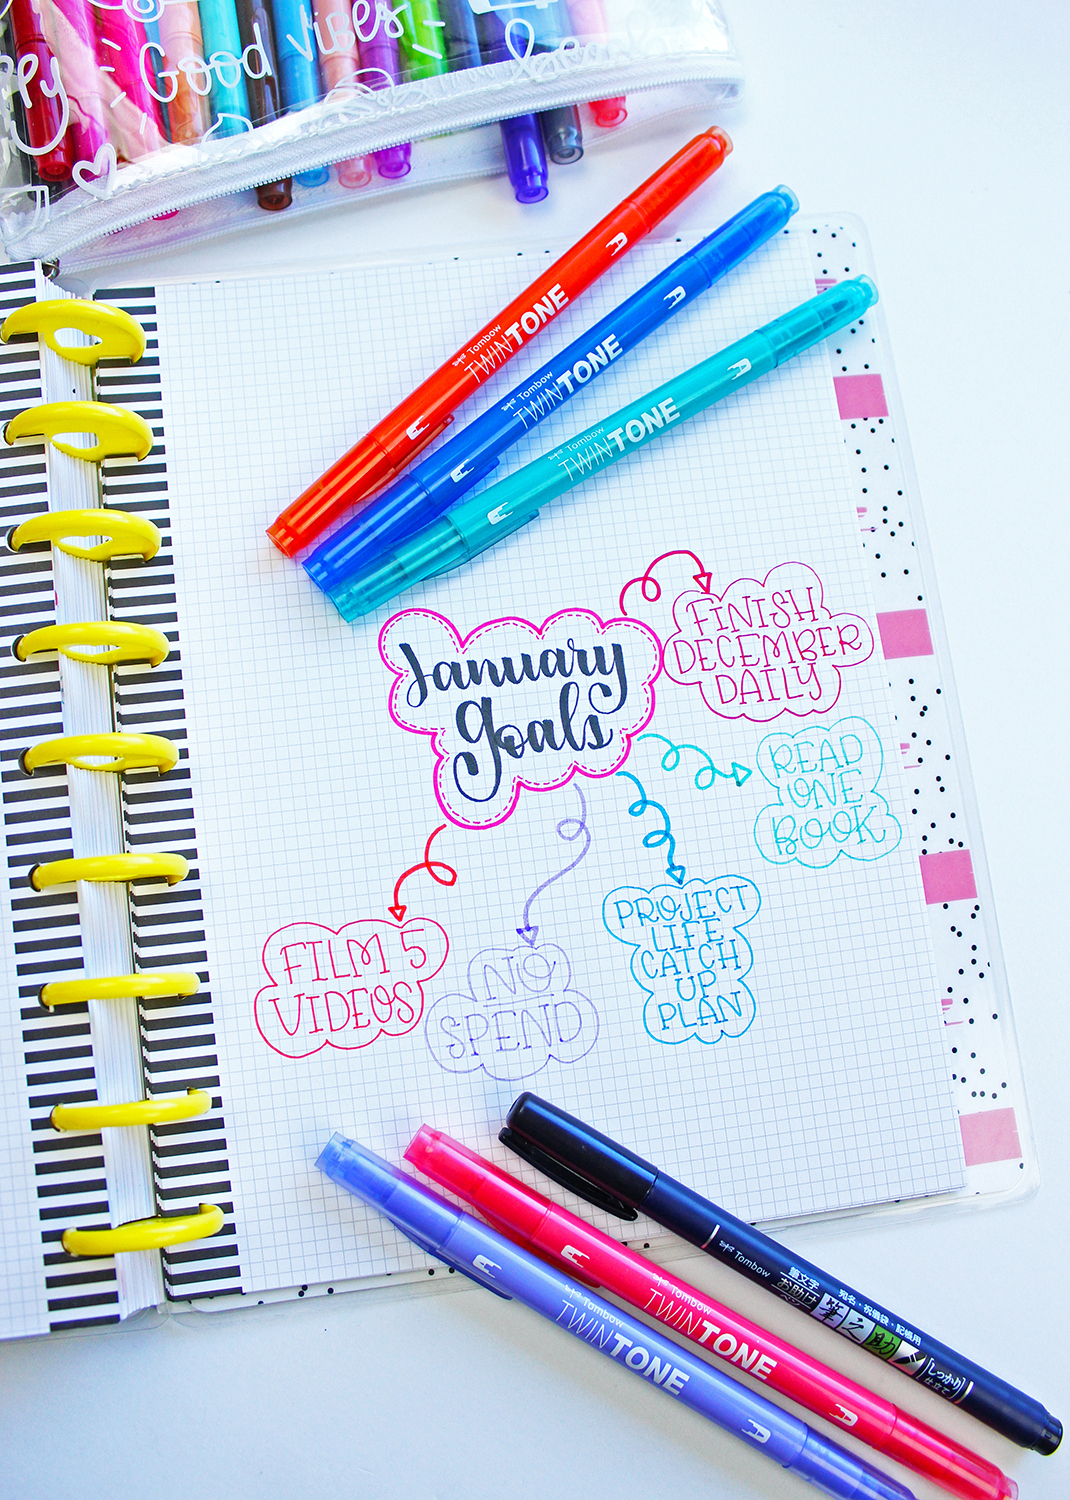 Good vibes
Tombow
TWINTONE
Tombow
TWINTONE
Tombow
TWINTONE
January
goals
FINISH
DECEMBER
DAILY
READ
ONE
BOOK
PROJECT
LIFE
CATCH
UP
PLAN
NO
SPEND
FILM 5
VIDEOS
Tombow
TWINTONE
Tombow
TWINTONE
Tombow
筆文字
お助け
ペン
宛名・祝儀袋・記帳用
筆之助
しっかり
仕立て